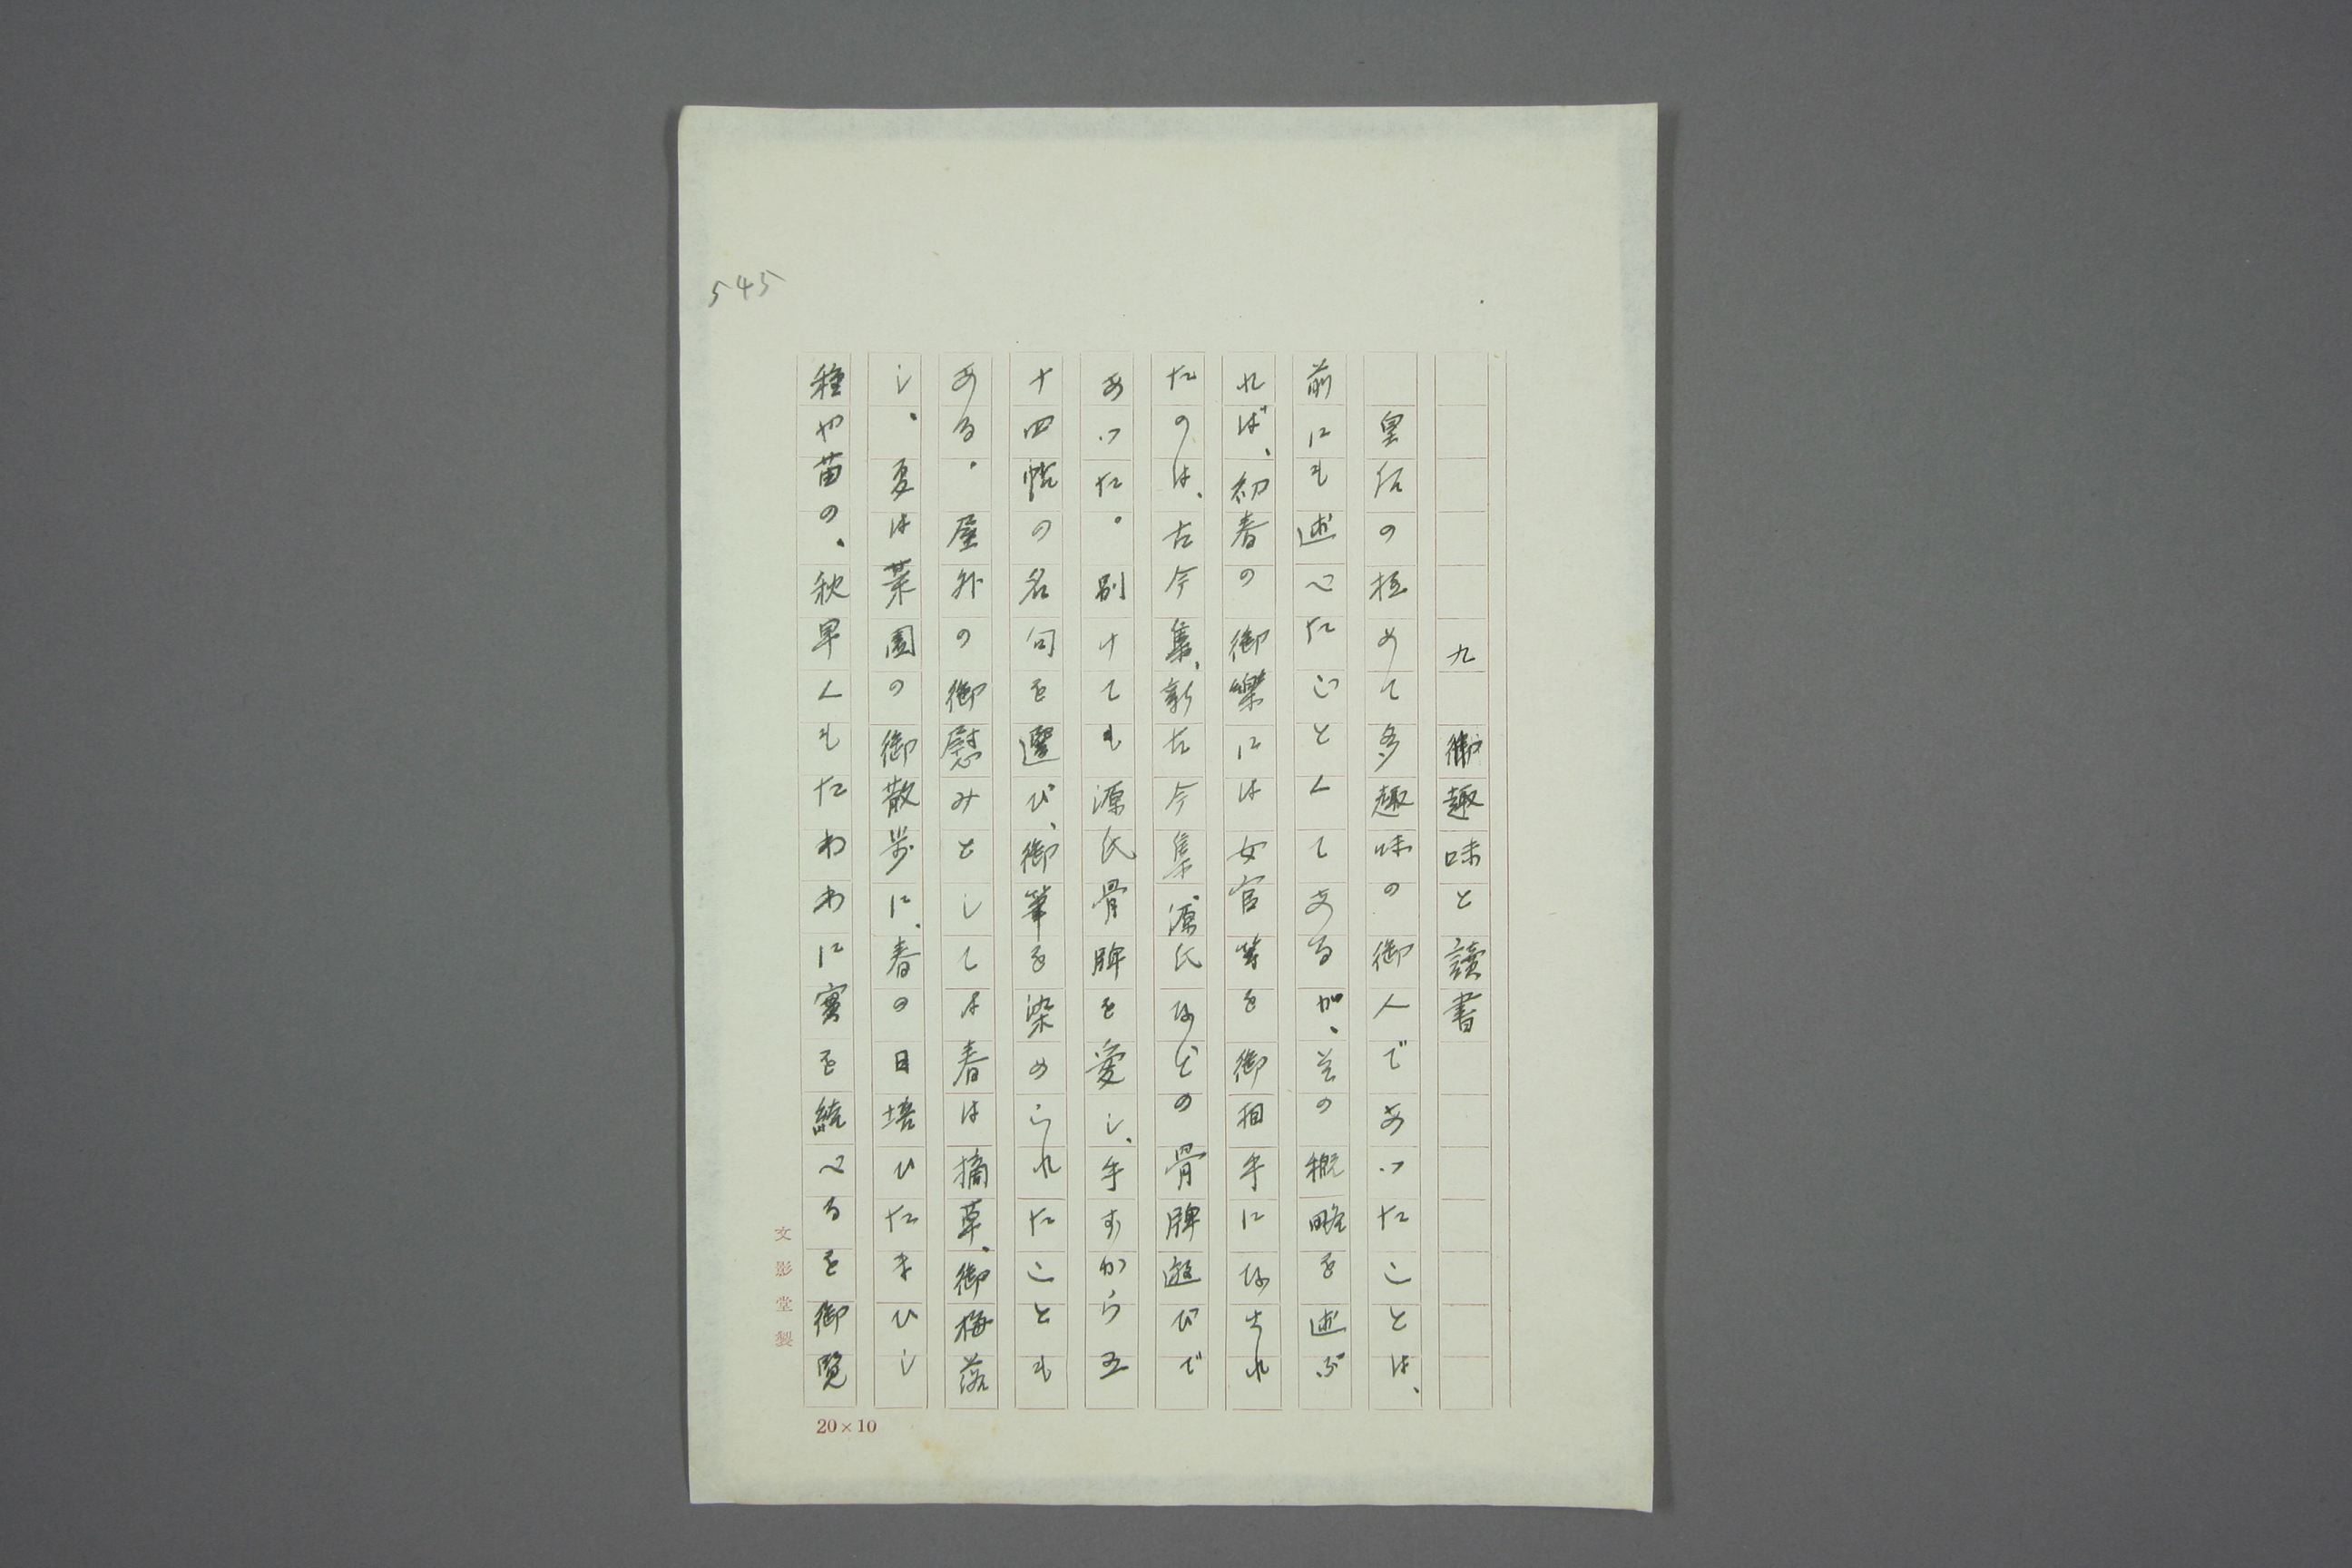 545
九　御趣味と讀書
皇后の極めて多趣味の御人であったことは、
前にも述べたごとくてあるが、その概略を述ぶ
れば、初春の御樂には女官等を御相手になされ
たのは、古今集、新古今集、源氏などの骨牌遊びで
あった。別けても源氏骨牌を愛し、手ずから五
十四帖の名句を選び、御筆を染められたことも
ある。屋外の御慰みとしては春は摘草、御梅落
し、夏は菜園の御散歩に、春の日培ひたまひし
種や苗の、秋早くもたわわに實を結べるを御覽
文影堂製
20×10